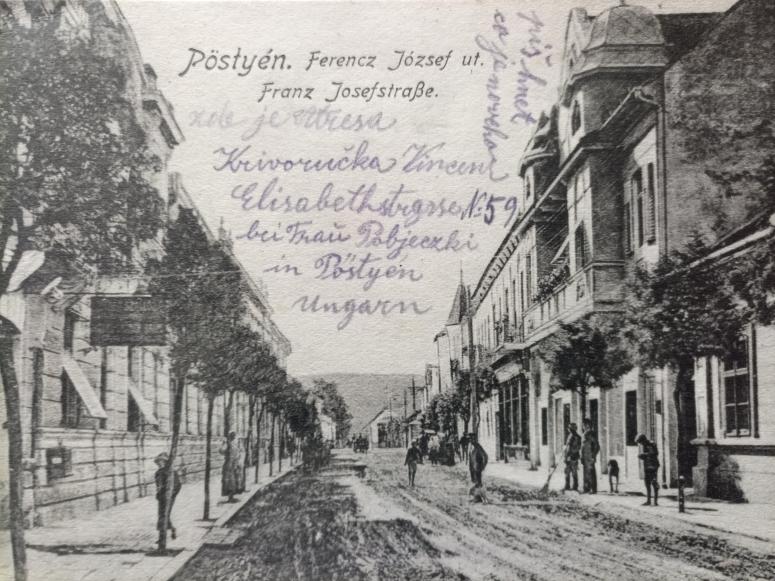 Pöstyén. Ferencz József ut.
Franz Josefstraße.
zde je atresa
Krivoručka Vincenz
Elisabethstrgsse №59
bei Frau Pobjeczki
in Pöstyén
Ungarn
piš hnet